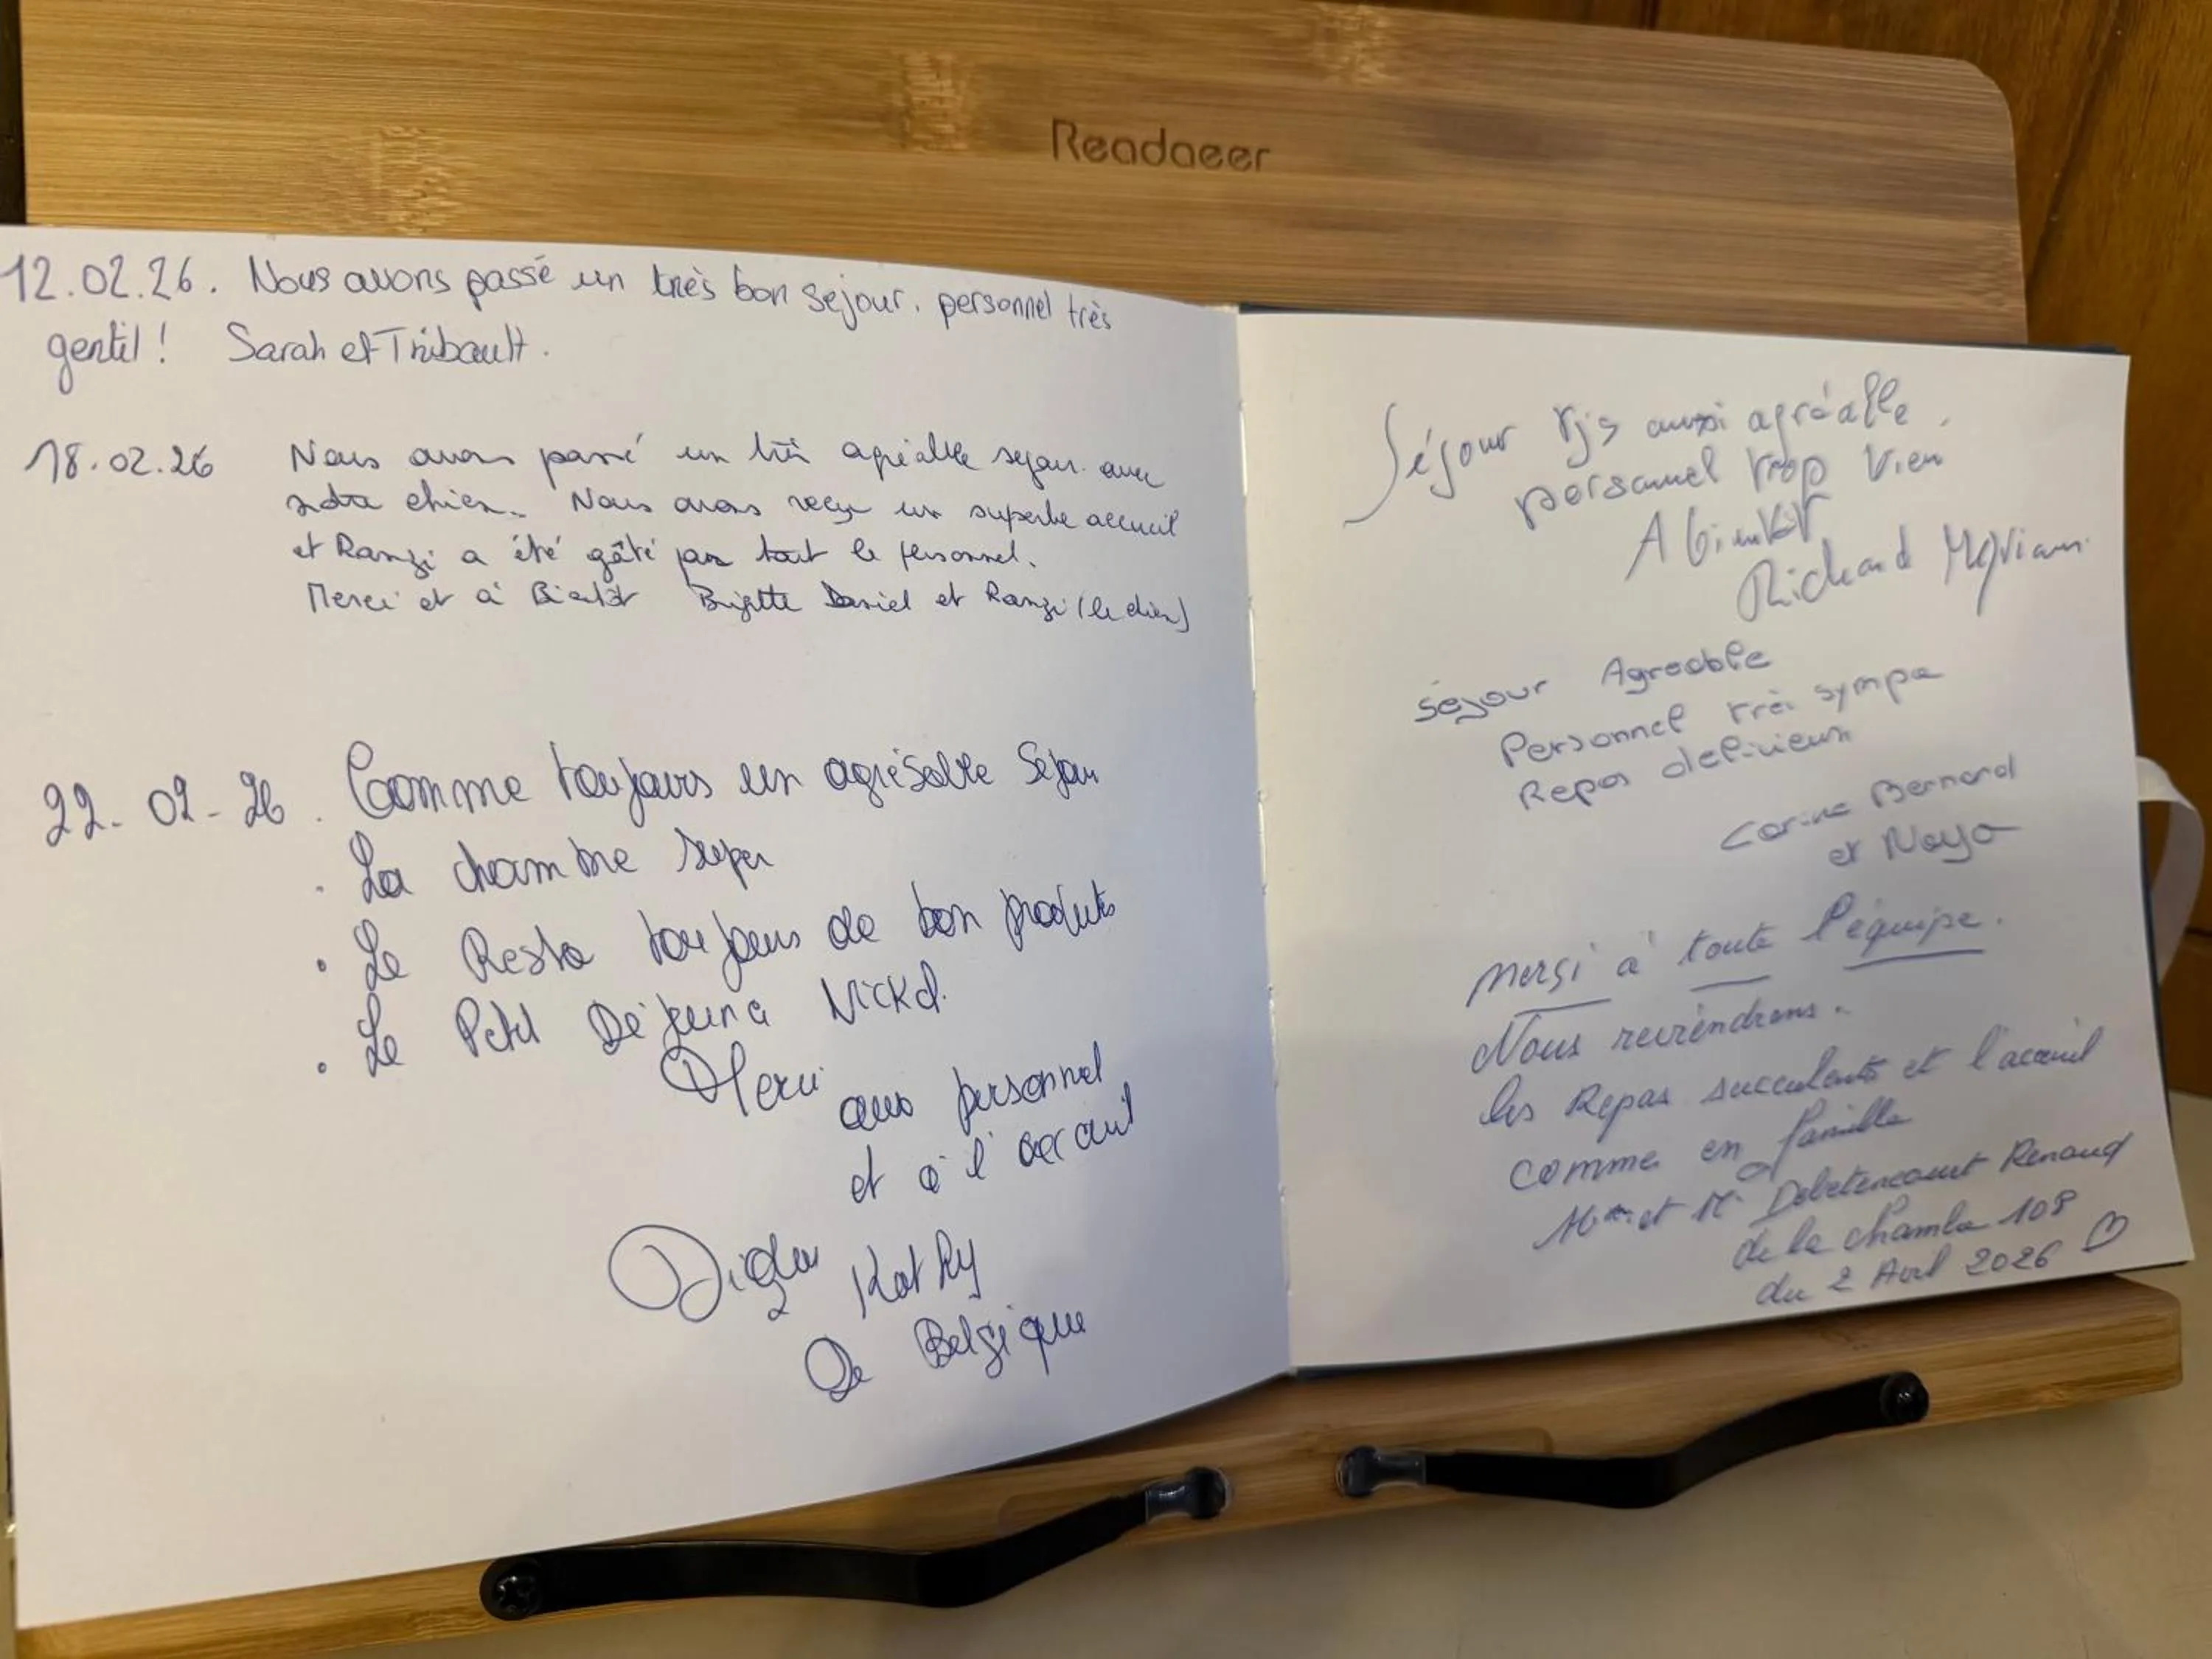 Readaeer
12.02.26. Nous avons passé un très bon sejour. personnel très
gentil ! Sarah et Thibault.
18.02.26 Nous avons passé un très agréable sejour avec
notre chien. Nous avons reçu un superbe accueil
et Ranzi a été gâté par tout le personnel.
Merci et à Bientôt Brigitte Daniel et Ranzi (le chien)
22-02-26. Comme toujours un agrésable Séjour
. La chambre super
. Le Resto toujours de bon produits
. Le Petit Déjeuné Nickel.
Merci aux personnel
et à l'accauil
Didier Kathy
De Belgique
Séjour tjs aussi agréable.
personnel trop bien
A bientôt
Richard Myriam
Séjour Agreable
Personnel très sympa
Repas delicieux
Corine Bernard
et Naya
Merçi à toute l'équipe.
Nous reviendrons.
les Repas succulents et l'acceuil
comme en famille
Mme et Mr Debetencourt Renaud
de la chambre 108
du 2 Avril 2026